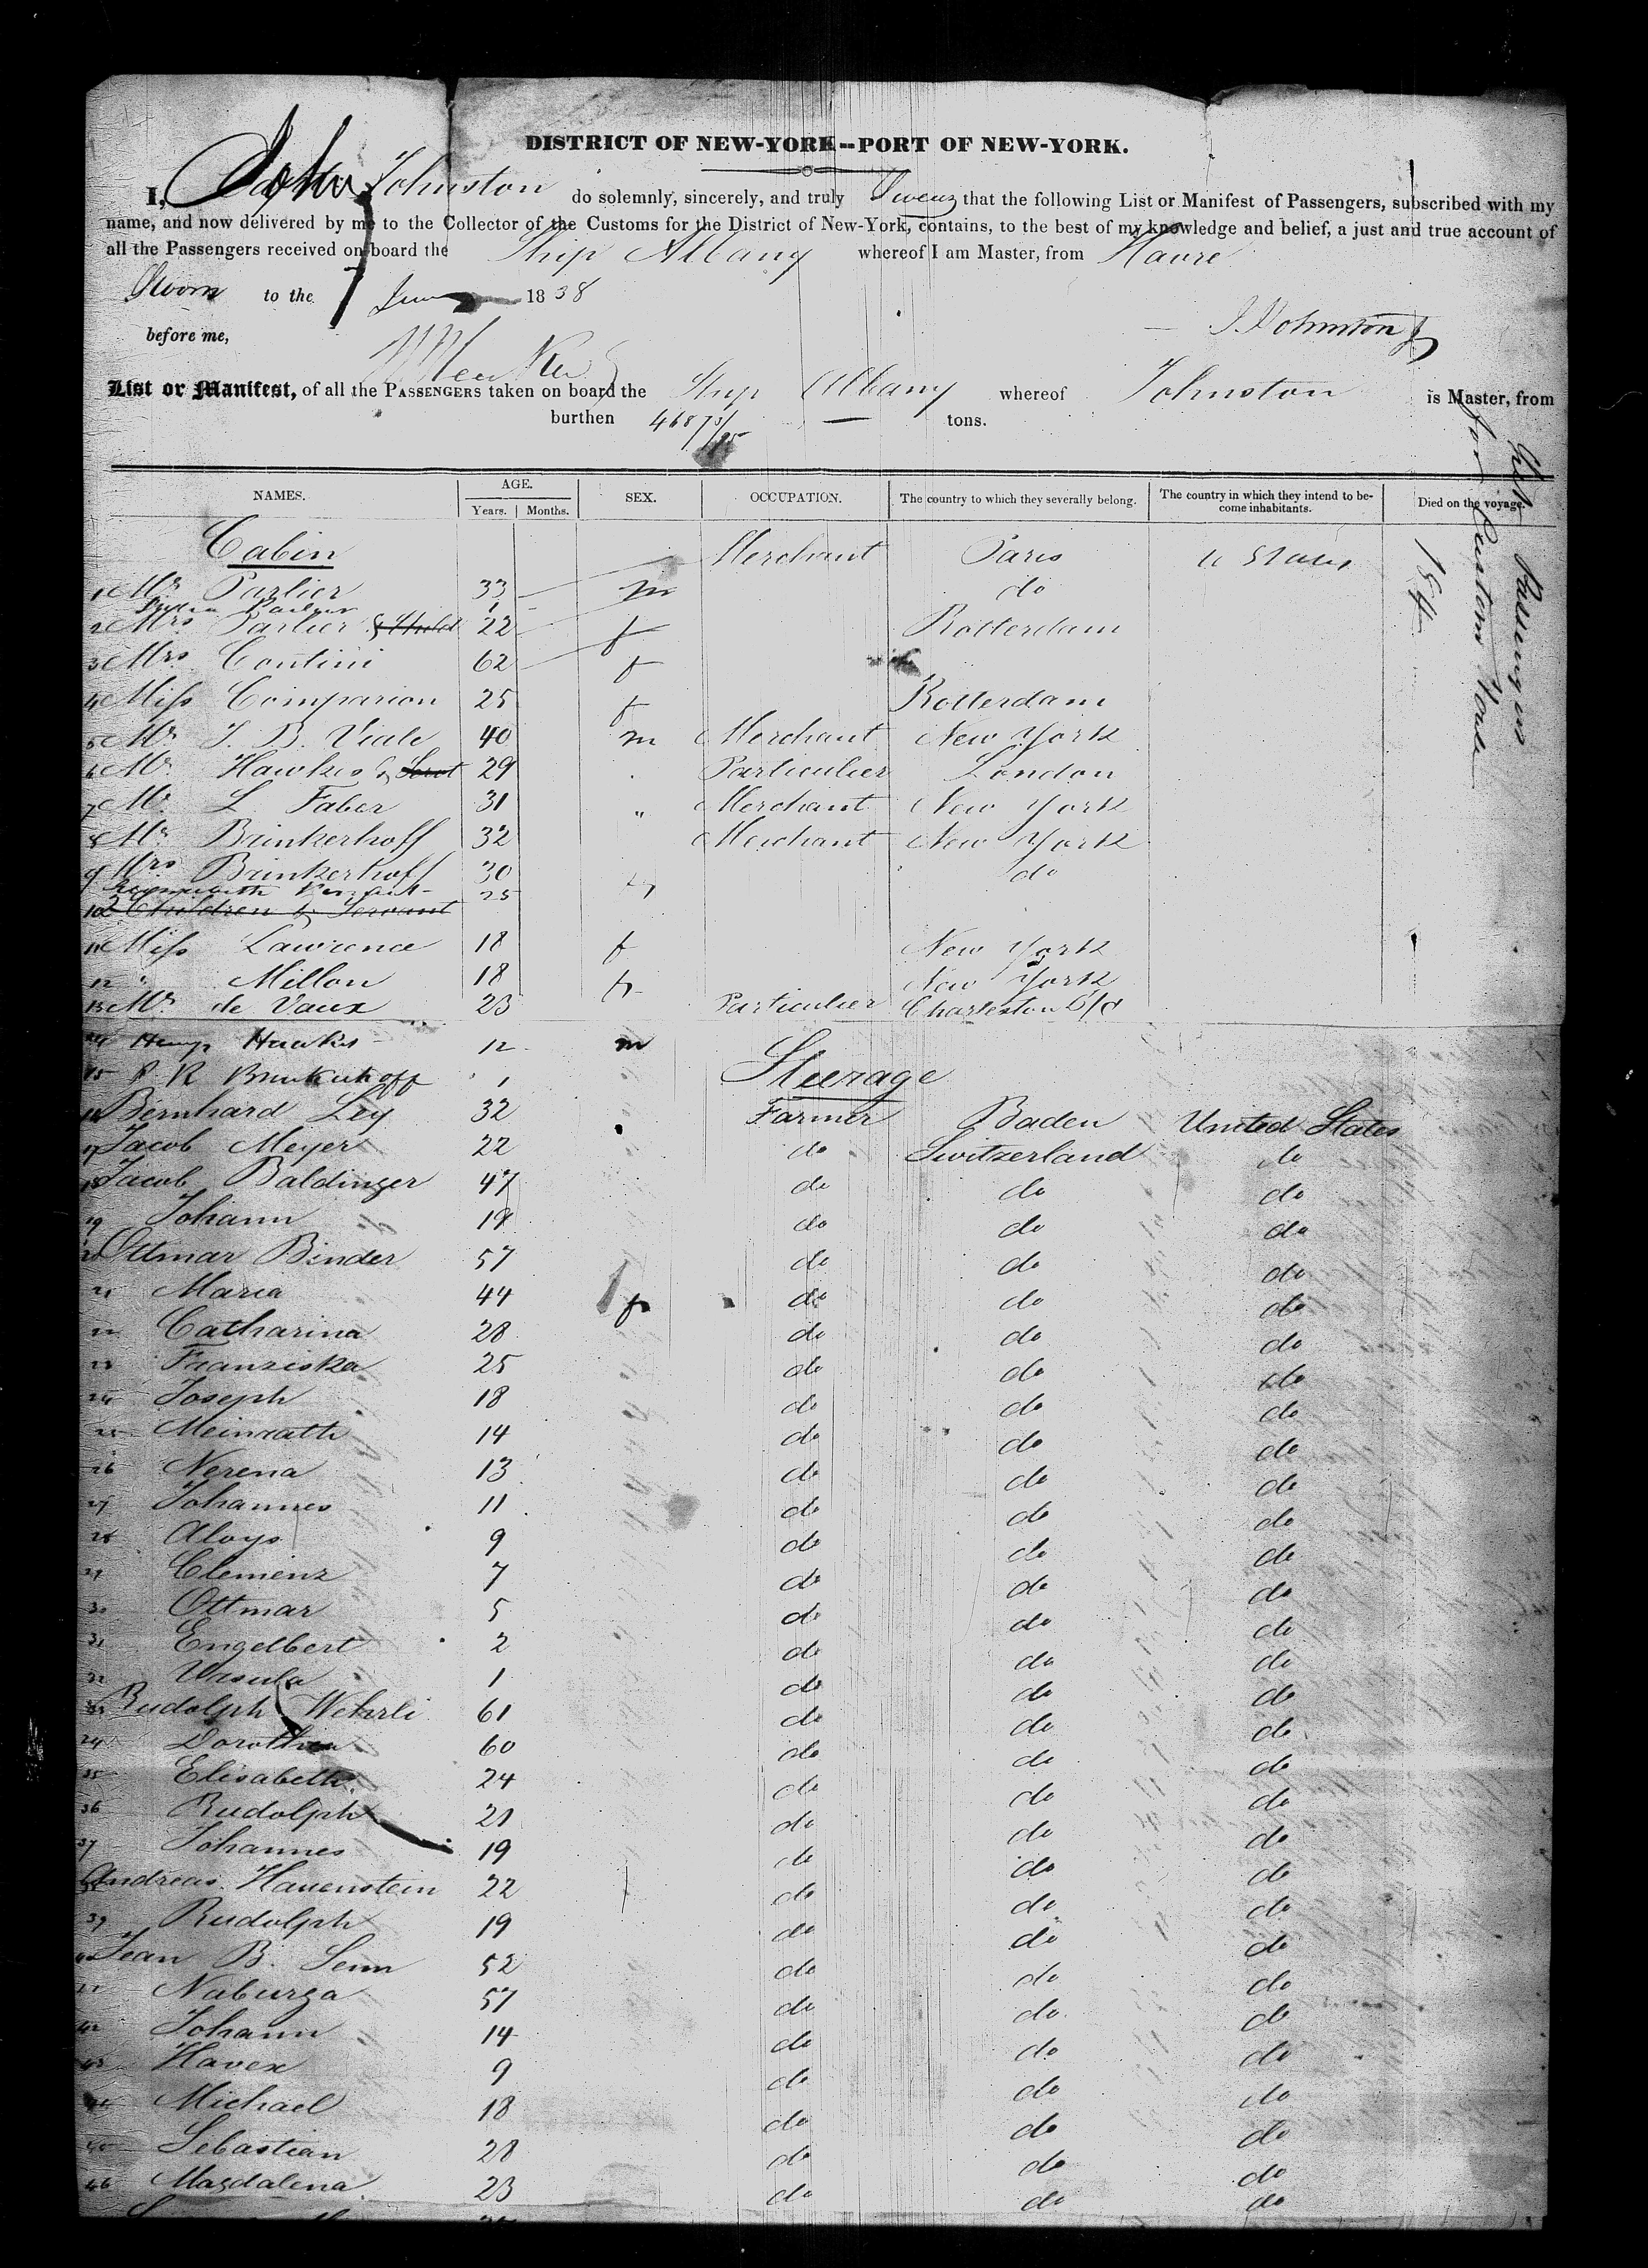 DISTRICT OF NEW-YORK--PORT OF NEW-YORK.
I, John Johnston do solemnly, sincerely, and truly Swear that the following List or Manifest of Passengers, subscribed with my
name, and now delivered by me to the Collector of the Customs for the District of New-York, contains, to the best of my knowledge and belief, a just and true account of
all the Passengers received on board the Ship Albany whereof I am Master, from Havre
Sworn to the 7 June 1838
before me, J Johnston
List or Manifest, of all the PASSENGERS taken on board the Ship Albany whereof Johnston is Master, from
burthen 468 tons.
NAMES. AGE. Years. Months. SEX. OCCUPATION. The country to which they severally belong. The country in which they intend to become inhabitants. Died on the voyage.
Cabin Merchant Paris U States
1 Mr Parlier 33 m do
Parlier 1
2 Mrs Parlier & Child 22 f Rotterdam
3 Mrs Contini 62 f
4 Miss Comparion 25 f Rotterdam
5 Mr J. B. Viale 40 m Merchant New York
6 Mr Hawkes & Servt 29 Particulier London
7 Mr L Faber 31 " Merchant New York
8 Mr Brinkerhoff 32 Merchant New York
9 Mrs Brinkerhoff 30 do
25
10 2 Children & Servant
11 Miss Lawrence 18 f New York
12 " Millon 18 f New York
13 Mr de Vaux 23 Particulier Charleston
14 Hawkes 12 m
15 R Brinkerhoff 1
Steerage
16 Bernhard Ley 32 Farmer Baden United States
17 Jacob Meyer 22 do Switzerland do
18 Jacob Baldinger 47 do do do
19 Johann 18 do do do
20 Ottmar Binder 57 do do do
21 Maria 44 f do do do
22 Catharina 28 do do do
23 Franziska 25 do do do
24 Joseph 18 do do do
25 Meinrath 14 do do do
26 Nerena 13 do do do
27 Johannes 11 do do do
28 Aloys 9 do do do
29 Clemenz 7 do do do
30 Ottmar 5 do do do
31 Engelbert 2 do do do
32 Ursula 1 do do do
33 Rudolph Wehrli 61 do do do
34 Dorothea 60 do do do
35 Elisabeth 24 do do do
36 Rudolph 21 do do do
37 Johannes 19 do do do
38 Andreas Hauenstein 22 do do do
39 Rudolph 19 do do do
40 Jean B. Senn 52 do do do
41 Naburga 57 do do do
42 Johann 14 do do do
43 Haver 9 do do do
44 Michael 18 do do do
45 Sebastian 28 do do do
46 Magdalena 23 do do do
Passengers
for Custom House
154